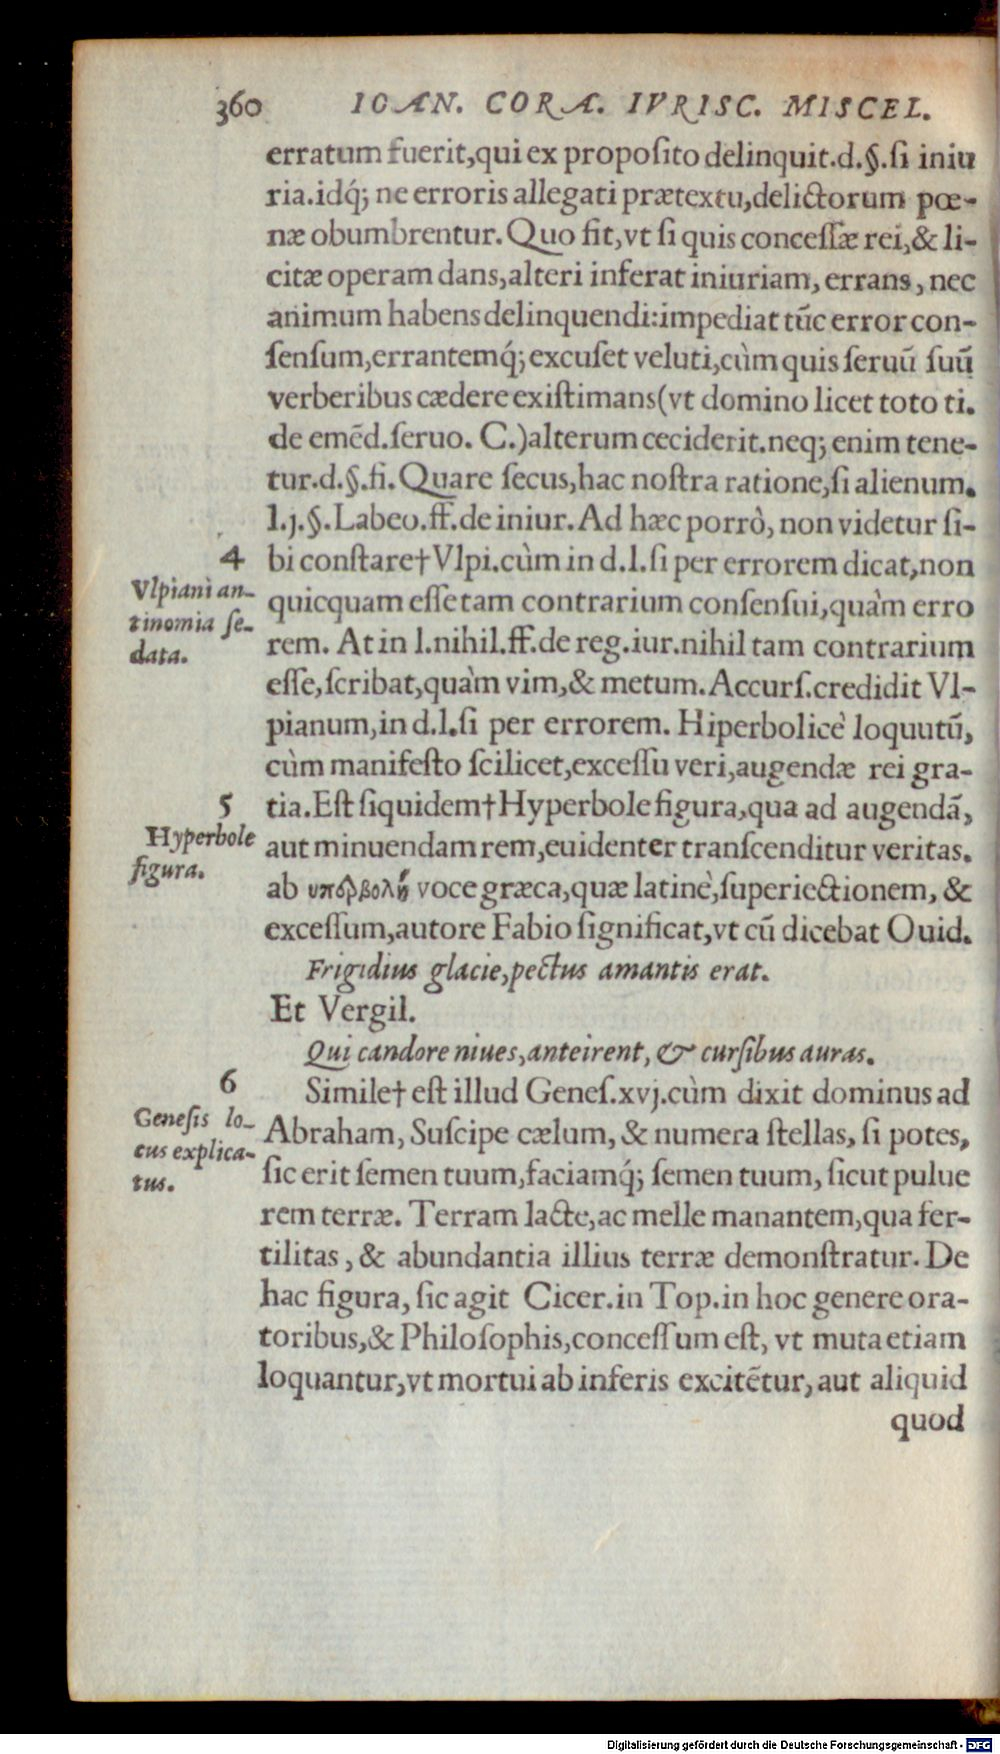 360 IOAN. CORA. IVRISC. MISCEL.
erratum fuerit,qui ex propoſito delinquit.d.§.ſi iniu
ria.idq́; ne erroris allegati prætextu,delictorum pœ-
næ obumbrentur. Quo fit,vt ſi quis conceſſæ rei,& li-
citæ operam dans,alteri inferat iniuriam, errans, nec
animum habens delinquendi:impediat tūc error con-
ſenſum,errantemq́; excuſet veluti,cùm quis ſeruū ſuū
verberibus cædere exiſtimans(vt domino licet toto ti.
de emēd.ſeruo. C.)alterum ceciderit.neq; enim tene-
tur.d.§.ſi. Quare ſecus,hac noſtra ratione,ſi alienum.
l.j.§.Labeo.ff.de iniur. Ad hæc porrò, non videtur ſi-
4
bi conſtare† Vlpi.cùm in d.l.ſi per errorem dicat,non
Vlpiani an-
tinomia ſe-
data.
quicquam eſſe tam contrarium conſenſui,quàm erro
rem. At in l.nihil.ff.de reg.iur.nihil tam contrarium
eſſe,ſcribat,quàm vim,& metum. Accurſ.credidit Vl-
pianum,in d.l.ſi per errorem. Hiperbolicè loquutū,
cùm manifeſto ſcilicet,exceſſu veri,augendæ rei gra-
5
tia. Eſt ſiquidem† Hyperbole figura,qua ad augendā,
Hyperbole
figura.
aut minuendam rem,euidenter tranſcenditur veritas.
ab υπερβολὴ voce græca,quæ latinè,ſuperiectionem, &
exceſſum,autore Fabio ſignificat,vt cū dicebat Ouid.
Frigidius glacie,pectus amantis erat.
Et Vergil.
Qui candore niues,anteirent, & curſibus auras.
6
Simile† eſt illud Geneſ.xvj.cùm dixit dominus ad
Geneſis lo-
cus explica-
tus.
Abraham, Suſcipe cælum, & numera ſtellas, ſi potes,
ſic erit ſemen tuum,faciamq́; ſemen tuum, ſicut pulue
rem terræ. Terram lacte,ac melle manantem,qua fer-
tilitas, & abundantia illius terræ demonſtratur. De
hac figura, ſic agit Cicer.in Top.in hoc genere ora-
toribus,& Philoſophis,conceſſum eſt, vt muta etiam
loquantur,vt mortui ab inferis excitētur, aut aliquid
quod
Digitalisierung gefördert durch die Deutsche Forschungsgemeinschaft - DFG